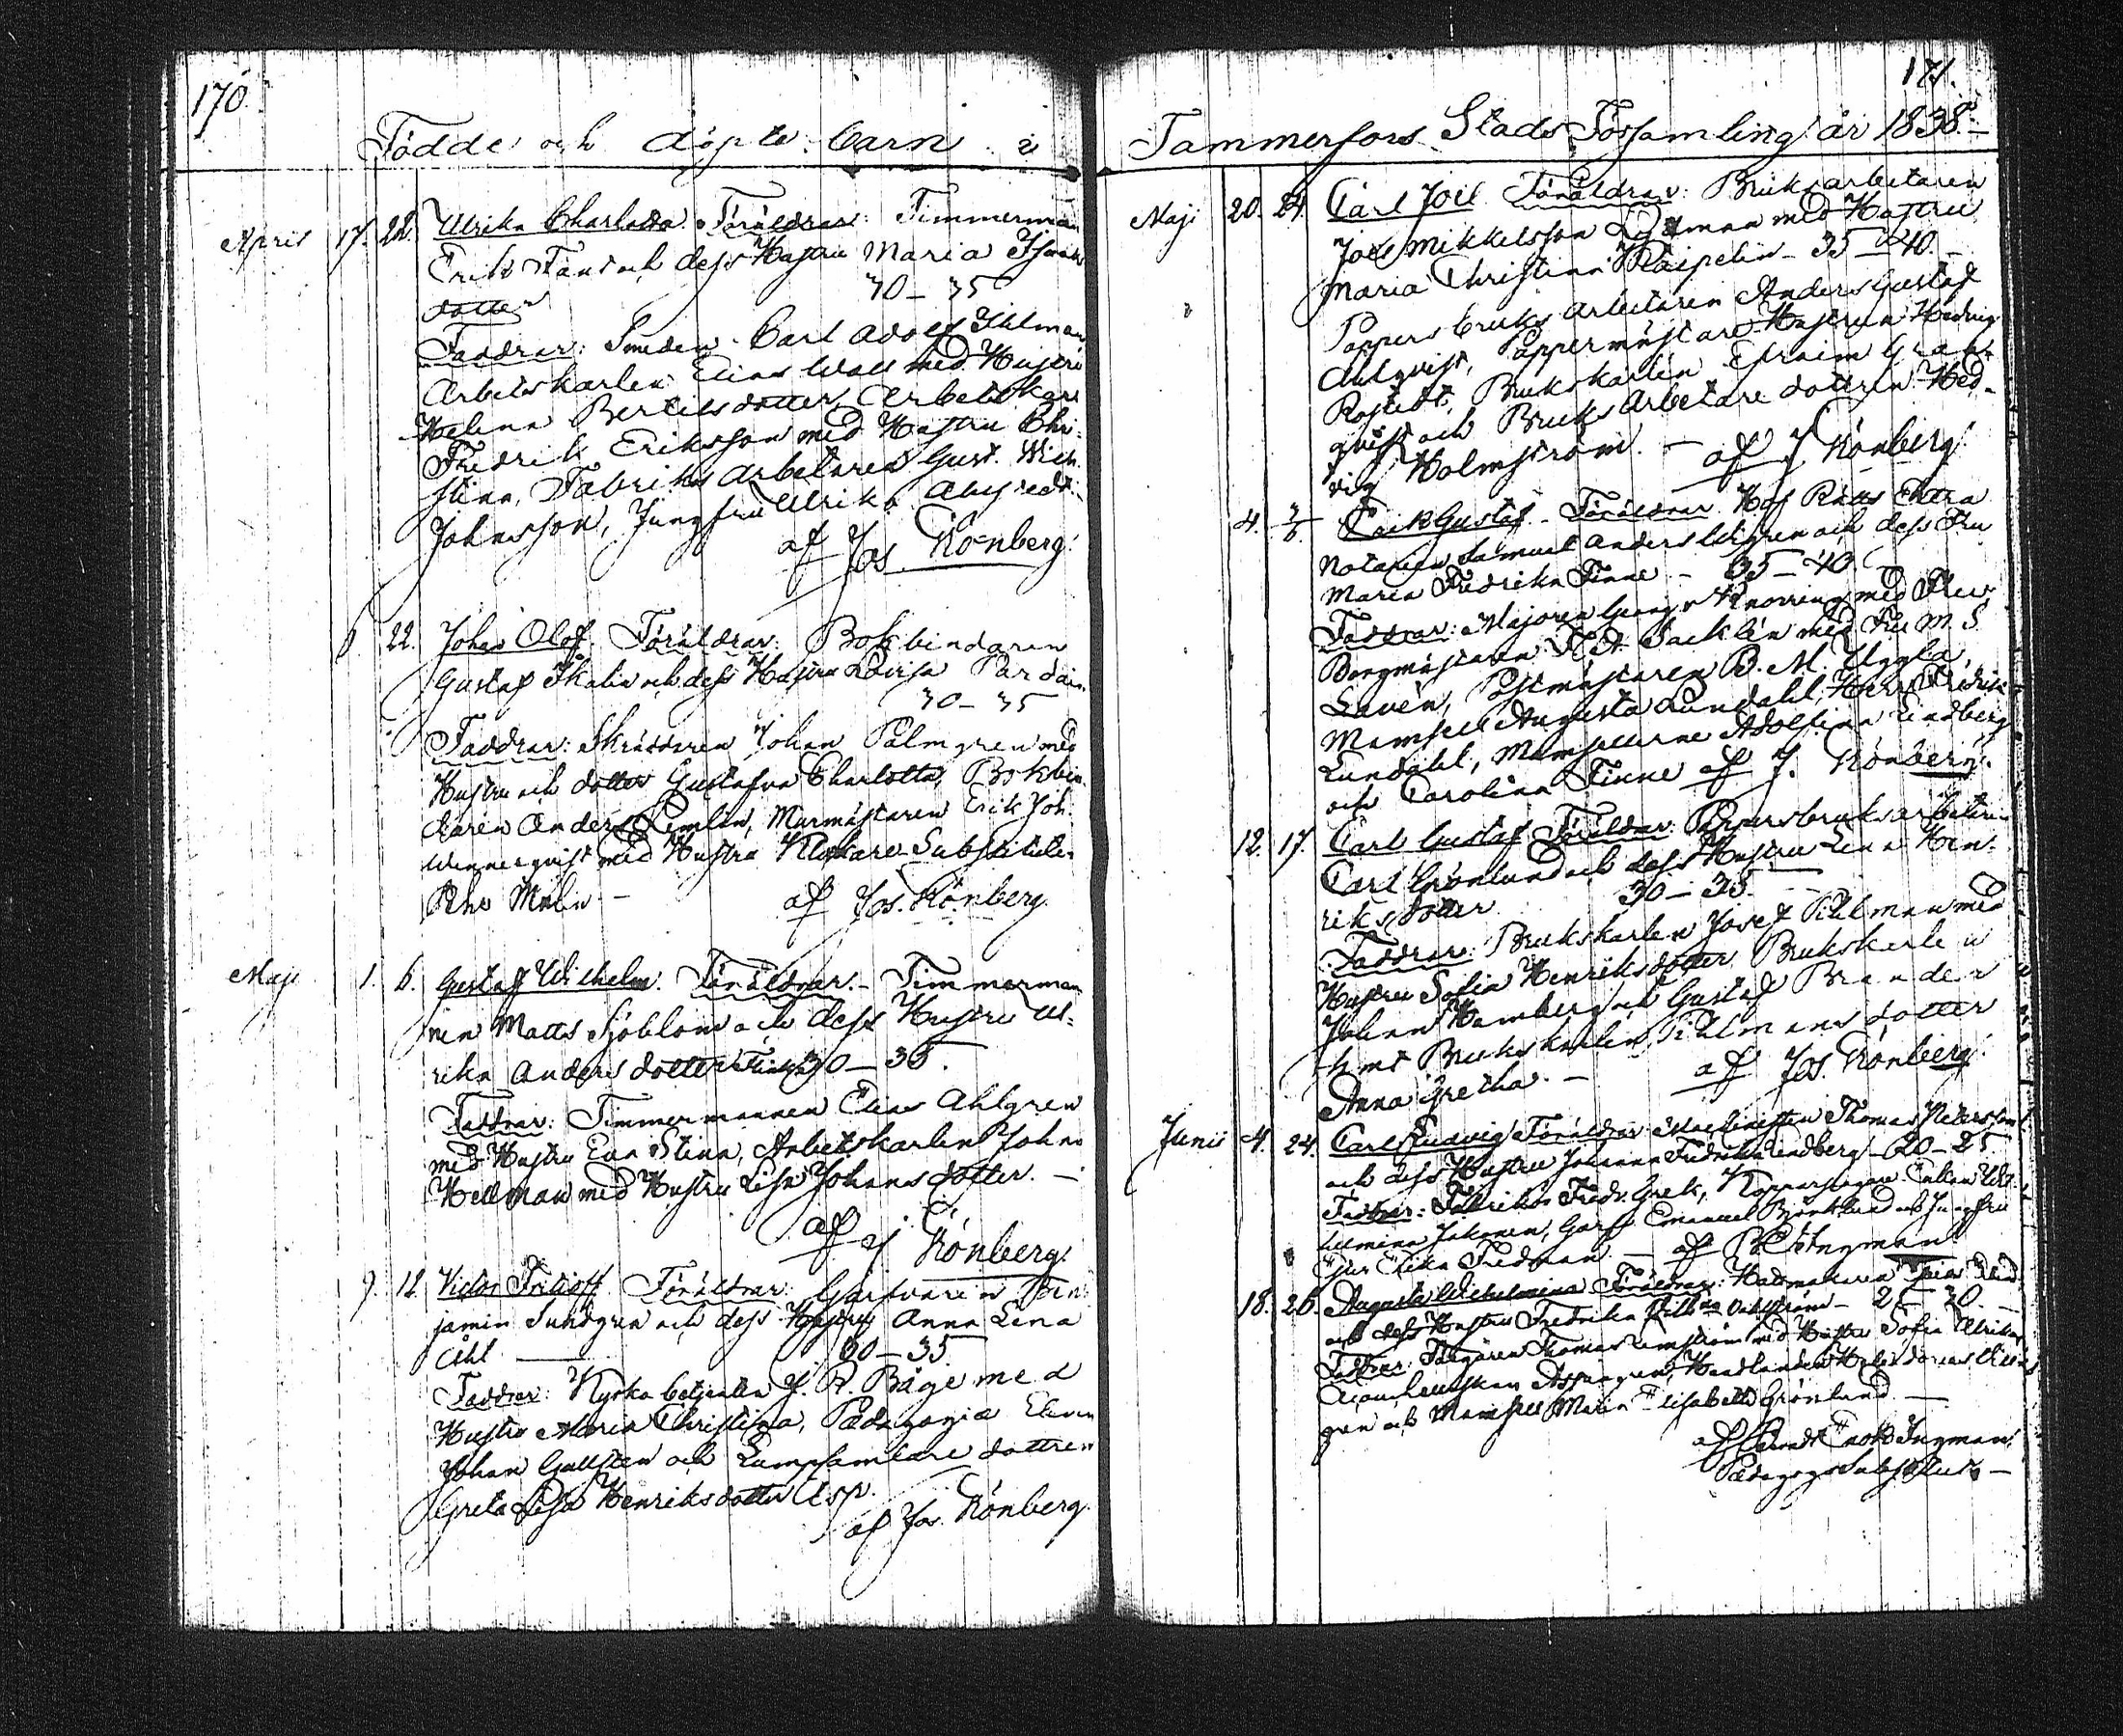 170.
Födde och döpte barn i
April 17. 22. Ulrika Charlotta. Föräldrar: Timmerman
Erik Fant och dess Hustru Maria Isaaks
dotter 30-35
Faddrar: Smeden Carl Adolf Ihlman
Arbetskarlen Elias Wall med Hustru
Helena Bertilsdotter, Arbetskarl
Fredrik Eriksson med Hustru Chri-
stina, Fabriks arbetaren Gust. Wilh.
Johnsson, Jungfru Ulrika
af Jos. Rönberg.
22. Johan Olof. Föräldrar: Bokbindaren
Gustaf och dess Hustru Lovisa
30-35
Faddrar: Skräddaren Johan Palmgren med
Hustru och dotter Gustafva Charlotta, Bokbin-
daren Anders Murmästaren Erik Joh.
Wennerqvist med Hustru Klockare Substituten
Malin - af Jos. Rönberg.
Maji 1. 6. Gustaf Wilhelm. Föräldrar: - Timmerman
nen Matts Sjöblom och dess Hustru Ul-
rika Anders dotter 30-35.
Faddrar: Timmermannen Elias Ahlgren
med Hustru Eva Stina, Arbetskarlen Johan
Hellman med Hustru Lisa Johans dotter. -
af J. Rönberg.
9. 12. Victor Frithioff. Föräldrar: Garfvaren Ben-
jamin Sundgren och dess Hustru Anna Lena
Ahl 30-35
Faddrar: Kyrko betjenten J. R. Båge med
Hustru Maria Christina, Pædagogiæ Eleven
Johan Gallsten och Lumpsamlare dottren
Greta Lisa Henriksdotter Asp.
af Jos. Rönberg.
171.
Tammerfors Stads Församling år 1838.
Maji 20. 24. Carl Joel. Föräldrar: Bruksarbetaren
Joel Mikkelsson med Hustru
Maria Christina 35-40. -
Pappersbruks arbetaren Anders Gustaf
Ahlqvist, Pappermästare Hustrun Hedvig
Rostedt, Brukskarlen Efraim Gran-
qvist och Bruks arbetare dottren Hed-
vig Holmström. - af J Rönberg.
4. Erik Gustaf. Föräldrar: Hof Rätts Extra
Notarien Samuel Anders och dess Fru
Maria Fredrika Finne - 35-40
Faddrar: Majoren Georg v Knorring med Fru,
Borgmästaren K. A. Sacklén med Fru M. S.
Lavén, Postmästaren B. M. Uggla,
Mamsell Augusta Lundahl, Herr Fredrik
Lundahl, Mamsellerne Adolfina Lindberg
och Carolina Finne af J. Rönberg.
12. 17. Carl Gustaf. Föräldrar: Pappersbruksarbetaren
Carl Grönlund och dess Hustru Lena Hen-
riksdotter 30-35.
Faddrar: Brukskarlen Josef Pihlman med
Hustru Sofia Henriksdotter, Brukskarlen
Johan Hamberg och Gustaf Brander
samt Brukskarlen Pihlmans dotter
Anna Gretha. - af Jos. Rönberg.
Junii 4. 24. Carl Ludvig. Föräldrar: Machinisten Thomas Peterson
och dess Hustru Johanna Fredrika Lindberg - 20-25
Faddrar: Fabrikör Fredr. Grek, Kopparslagare Wil-
helmina Garf. Emanuel Björklund och Jungfru
Erika Fredman. - af Ingman
18. 26. Augusta Wilhelmina. Föräldrar: Hattmakaren
och dess Hustru Fredrika -
Faddrar: Färgaren Thomas med Hustru Sofia Ulrika
Handlanden
och Mamsell Maria Elisabeth Grönlund. -
af Ingman
Pædagog.